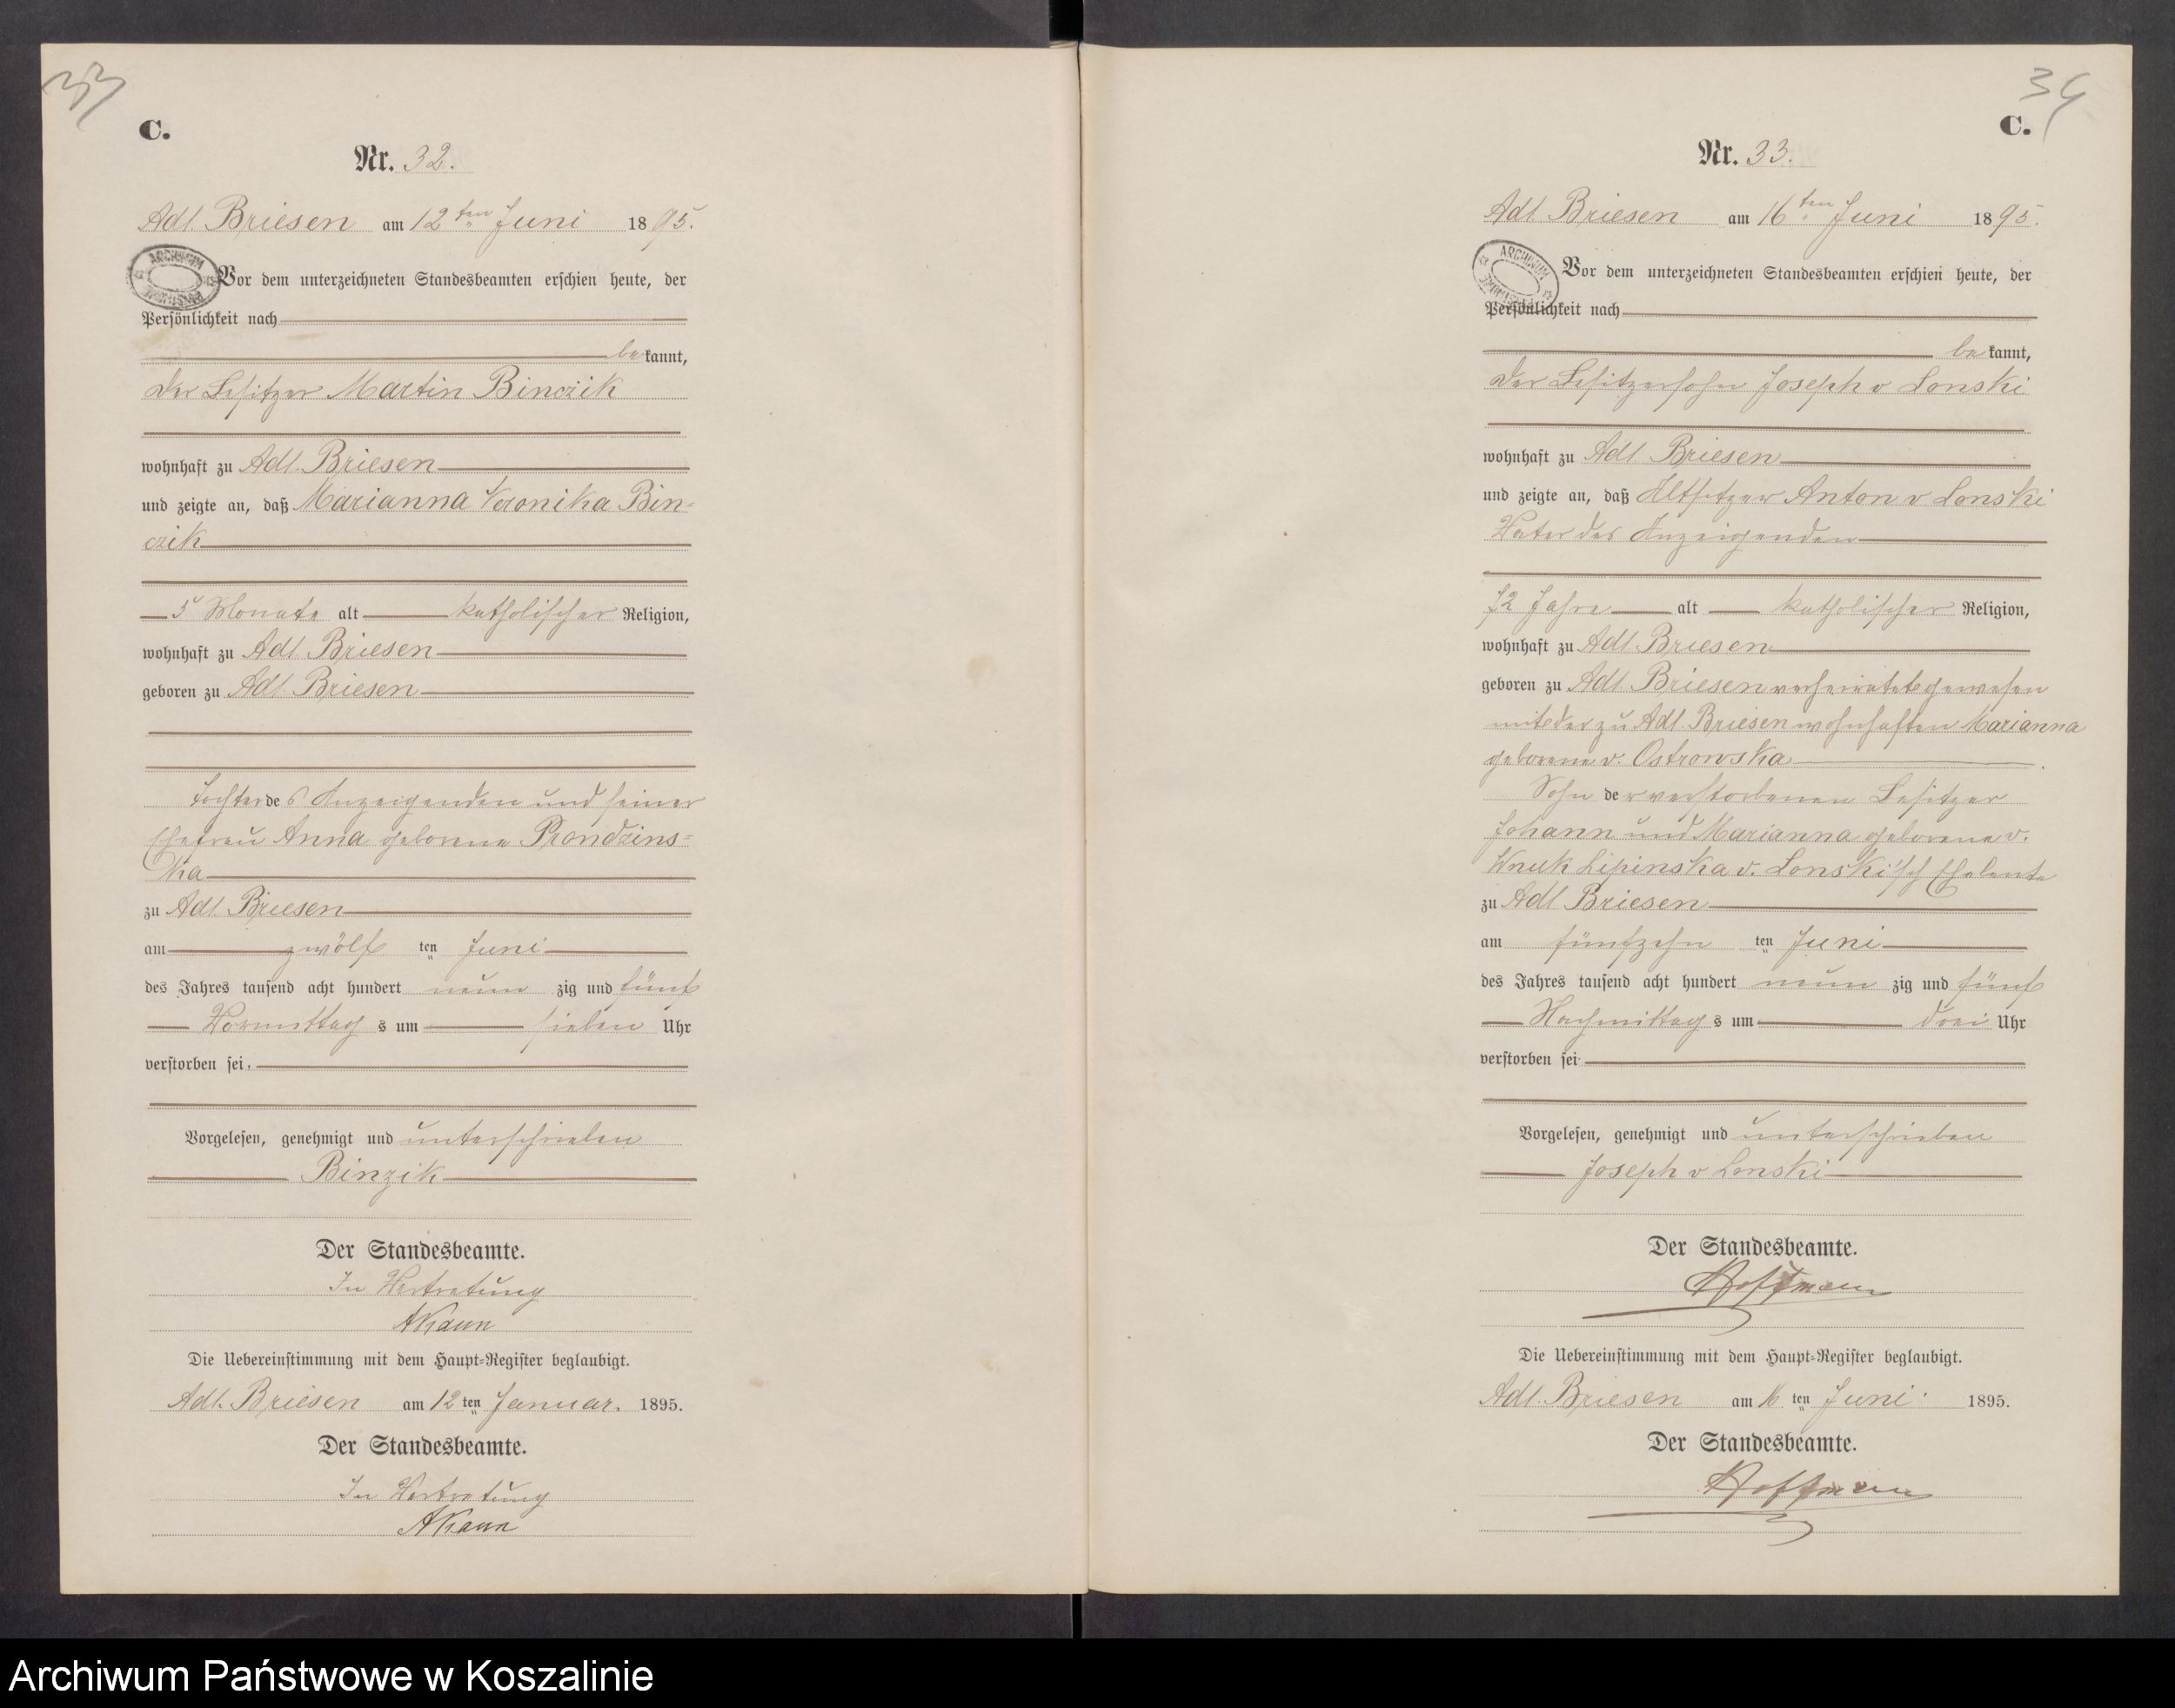 33
C.
Nr. 32.
Adl. Briesen am 12ten Juni 1895.
ARCHIWUM
Vor dem unterzeichneten Standesbeamten erschien heute, der
Persönlichkeit nach
bekannt,
der Besitzer Martin Binczik
wohnhaft zu Adl. Briesen
und zeigte an, daß Marianna Veronika Bin=
czik
5 Monate alt katholischer Religion,
wohnhaft zu Adl. Briesen
geboren zu Adl. Briesen
Tochter des Anzeigenden und seiner
Ehefrau Anna geborene Prondzins=
ka
zu Adl. Briesen
am zwölf ten Juni
des Jahres tausend acht hundert neun zig und fünf
Vormittag s um sieben Uhr
verstorben sei.
Vorgelesen, genehmigt und unterschrieben
Binzik
Der Standesbeamte.
In Vertretung
Die Uebereinstimmung mit dem Haupt=Register beglaubigt.
Adl. Briesen am 12 ten Januar. 1895.
Der Standesbeamte.
In Vertretung
34
C.
Nr. 33.
Adl. Briesen am 16ten Juni 1895.
ARCHIWUM
Vor dem unterzeichneten Standesbeamten erschien heute, der
Persönlichkeit nach
bekannt,
der Besitzersohn Joseph v Lonski
wohnhaft zu Adl. Briesen
und zeigte an, daß Altsitzer Anton v Lonski
Vater des Anzeigenden
72 Jahre alt katholischer Religion,
wohnhaft zu Adl. Briesen
geboren zu Adl. Briesen verheiratet gewesen
mit der zu Adl. Briesen wohnhaften Marianna
geborene v. Ostrowska
Sohn der verstorbenen Besitzer
Johann und Marianna geborene v.
Wnuk Lipinska v. Lonski'sch Eheleute
zu Adl. Briesen
am fünfzehn ten Juni
des Jahres tausend acht hundert neun zig und fünf
Nachmittag s um drei Uhr
verstorben sei
Vorgelesen, genehmigt und unterschrieben
Joseph v Lonski
Der Standesbeamte.
Hoffmann
Die Uebereinstimmung mit dem Haupt=Register beglaubigt.
Adl. Briesen am 16 ten Juni. 1895.
Der Standesbeamte.
Hoffmann
Archiwum Państwowe w Koszalinie